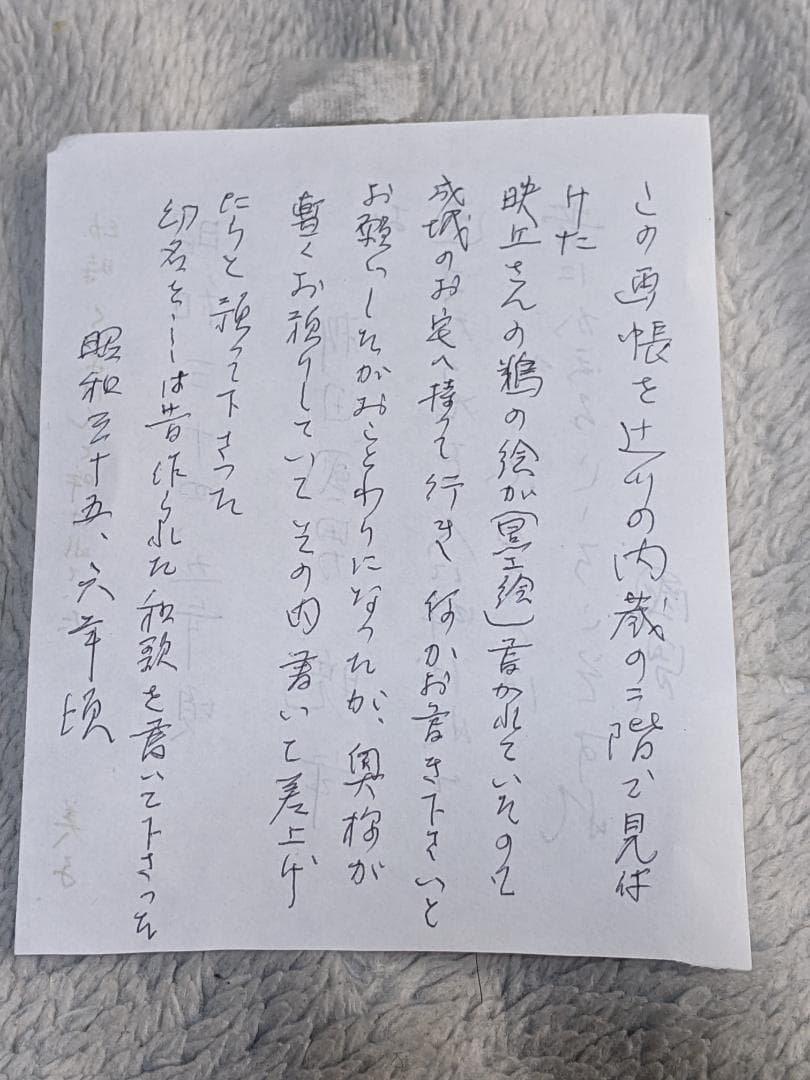 この画帳を辻川の内蔵の二階で見付
けた
映丘さんの鶏の絵が(墨絵)書かれていたので
成城のお宅へ持って行き何かお書き下さいと
お願いしたがおことわりになったが、奥様が
暫くお預りしていてその内書いて差上げ
と預って下さった
幼名は昔作られた和歌を書いて下さった
昭和三十五、六年頃